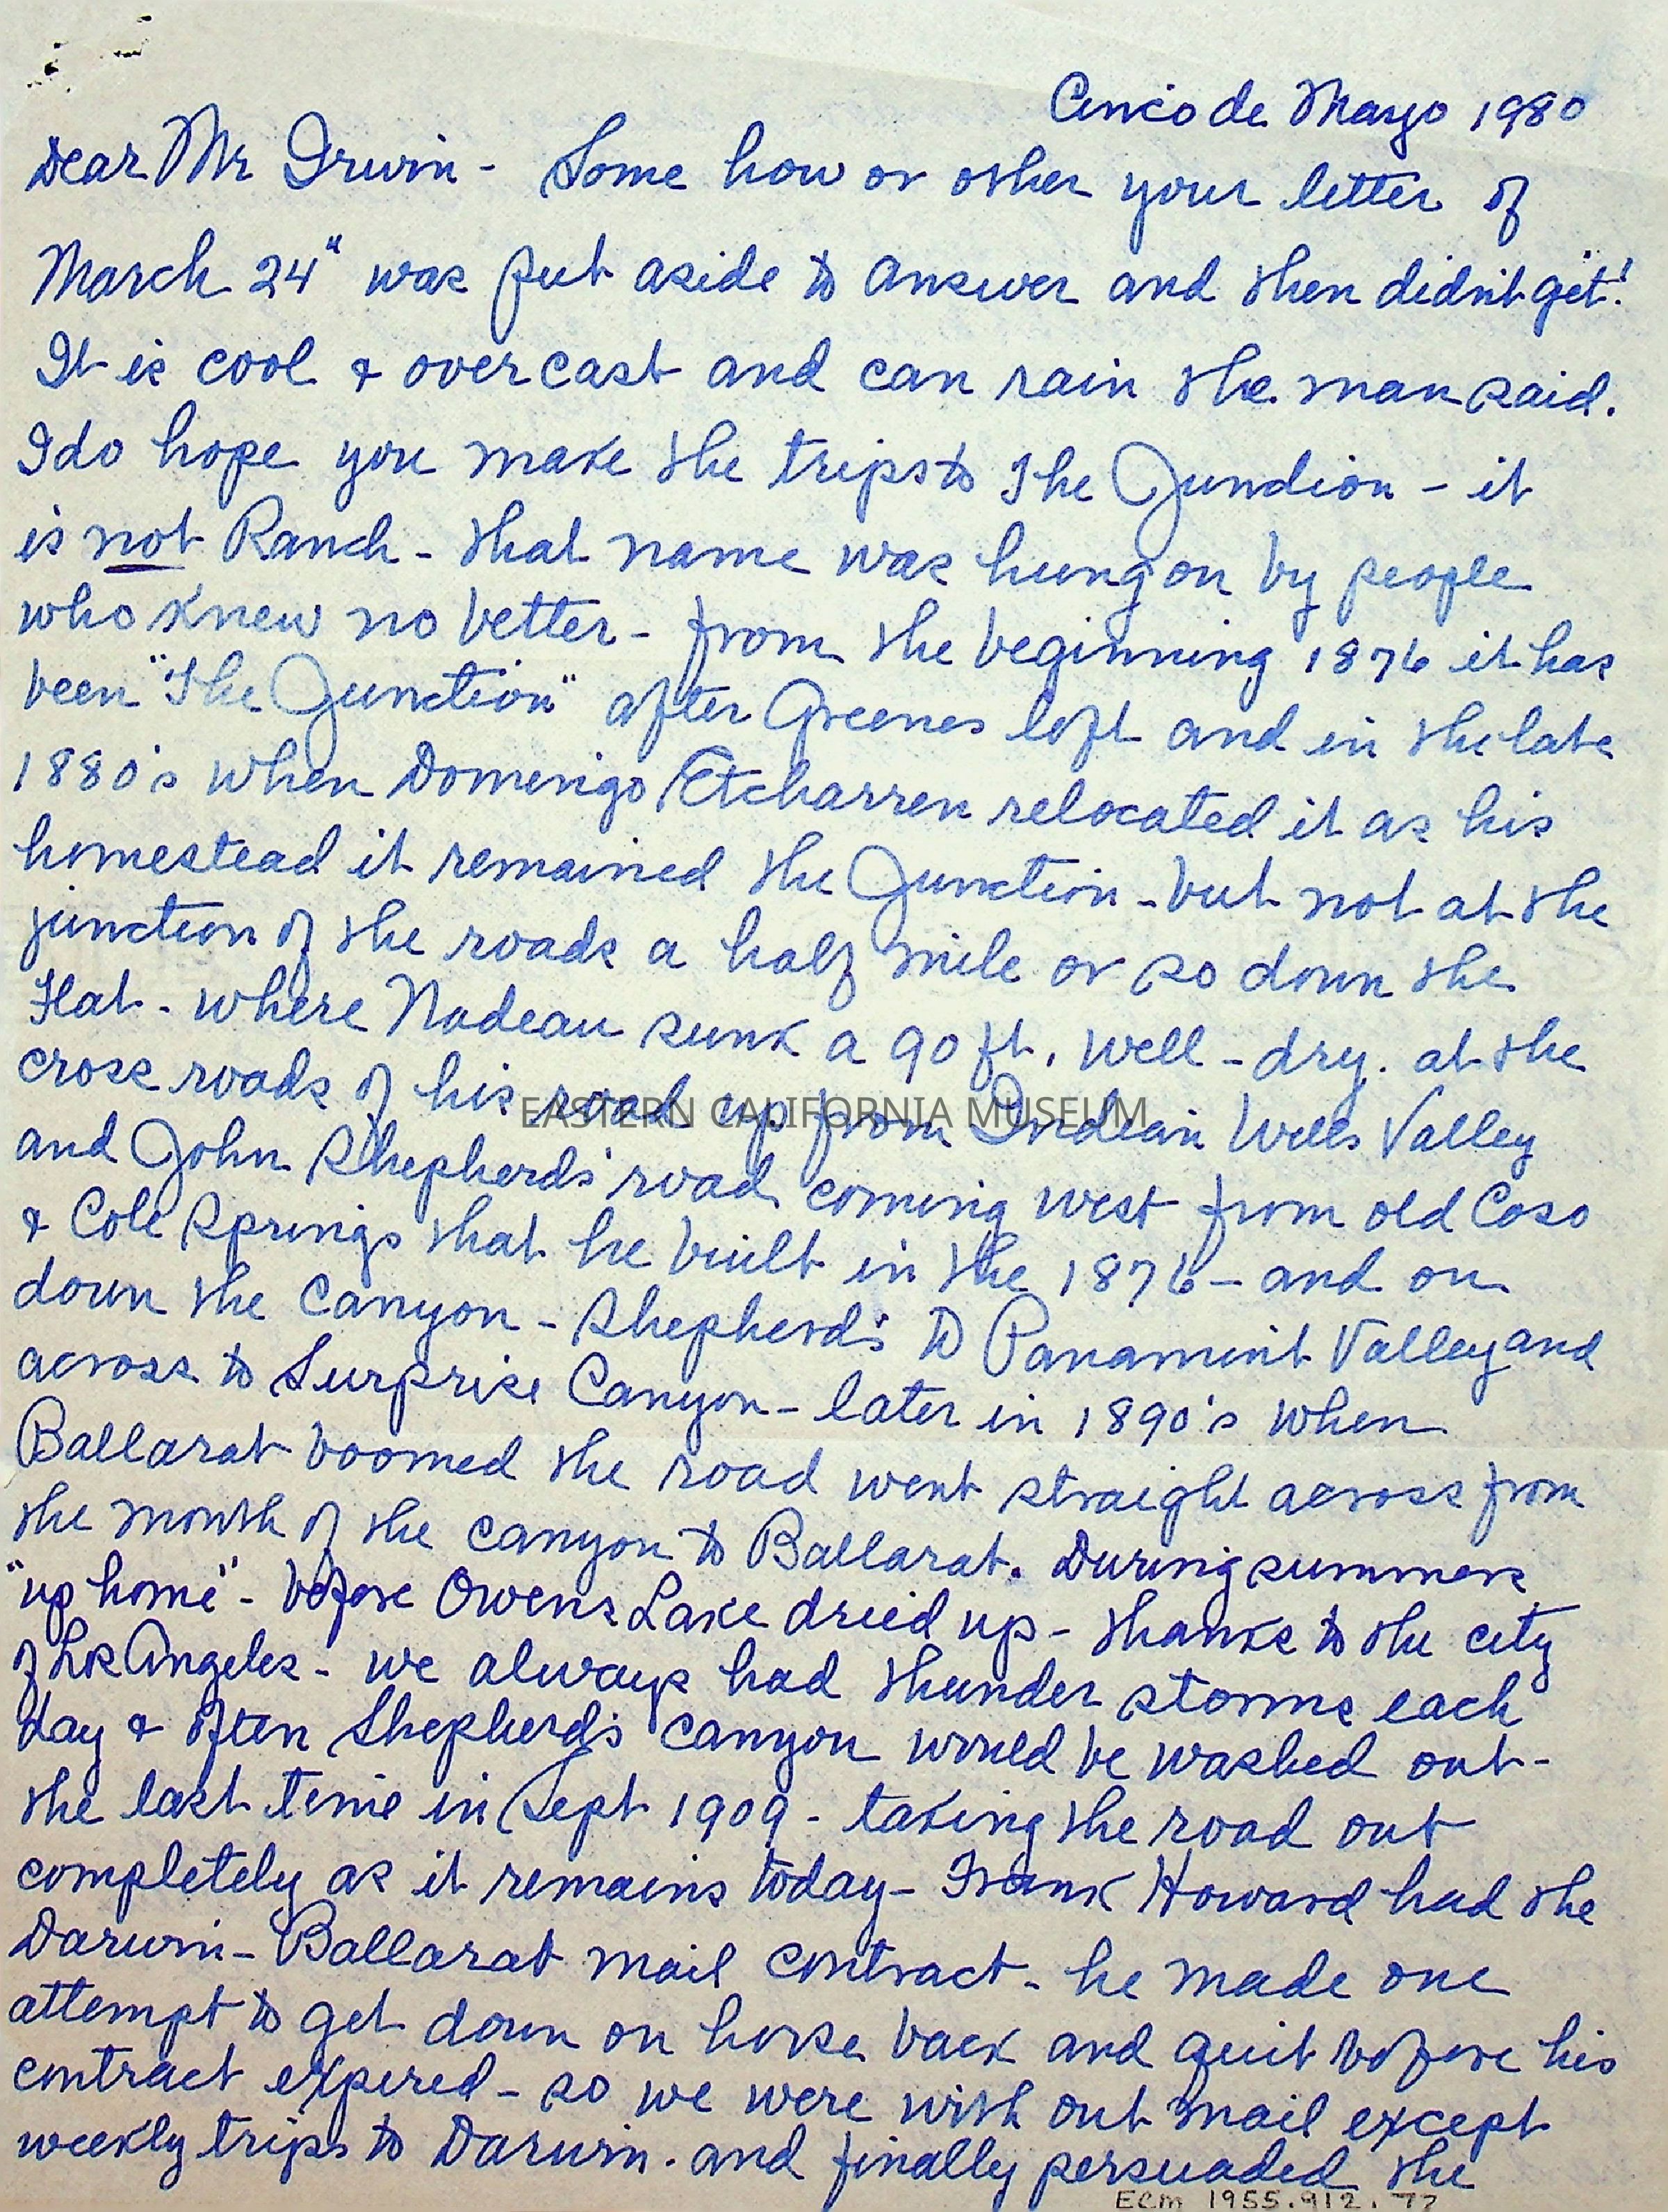 Cinco de Mayo 1980
Dear Mr Irwin - Some how or other your letter of
March 24" was put aside to answer and then didn't get!
It is cool & overcast and can rain the man said.
I do hope you make the trips to The Junction - it
is not Ranch - that name was hung on by people
who knew no better - from the beginning 1876 it has
been "The Junction" after Greenes left and in the late
1880's when Domingo Etcharren relocated it as his
homestead it remained the Junction - but not at the
junction of the roads a half mile or so down the
Flat - where Nadeau sunk a 90 ft. well - dry. at the
cross roads of his road up from Indian Wells Valley
EASTERN CALIFORNIA MUSEUM
and John Shepherds' road coming west from old Coso
& Cole Springs that he built in the 1876 - and on
down the Canyon - Shepherd's to Panamint Valley and
across to Surprise Canyon - later in 1890's when
Ballarat boomed the road went straight across from
the mouth of the canyon to Ballarat. During summers
"up home" - before Owens Lake dried up - thanks to the city
of Los Angeles - we always had thunder storms each
day & often Shepherd's canyon would be washed out -
the last time in Sept 1909 - taking the road out
completely as it remains today - Frank Howard had the
Darwin - Ballarat mail contract - he made one
attempt to get down on horse back and quit before his
contract expired - so we were with out mail except
weekly trips to Darwin. and finally persuaded the
ECM 1955.912.72